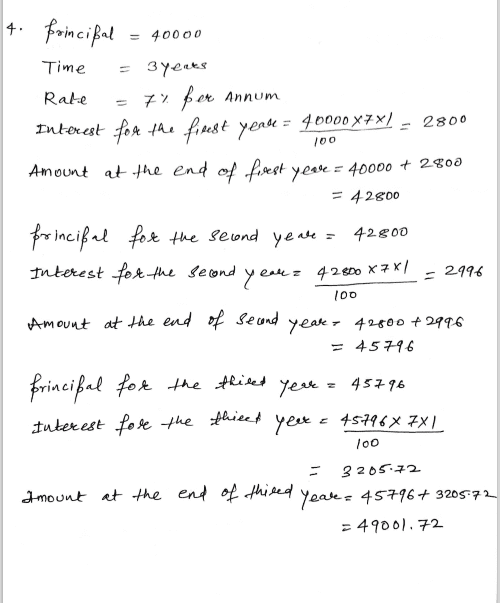 4. principal = 40000
Time = 3 years
Rate = 7% per Annum
Interest for the first year = 40000 x 7 x 1 / 100 = 2800
Amount at the end of first year = 40000 + 2800
= 42800
principal for the second year = 42800
Interest for the second year = 42800 x 7 x 1 / 100 = 2996
Amount at the end of second year = 42800 + 2996
= 45796
principal for the third year = 45796
Interest for the third year = 45796 x 7 x 1 / 100
= 3205.72
Amount at the end of third year = 45796 + 3205.72
= 49001.72